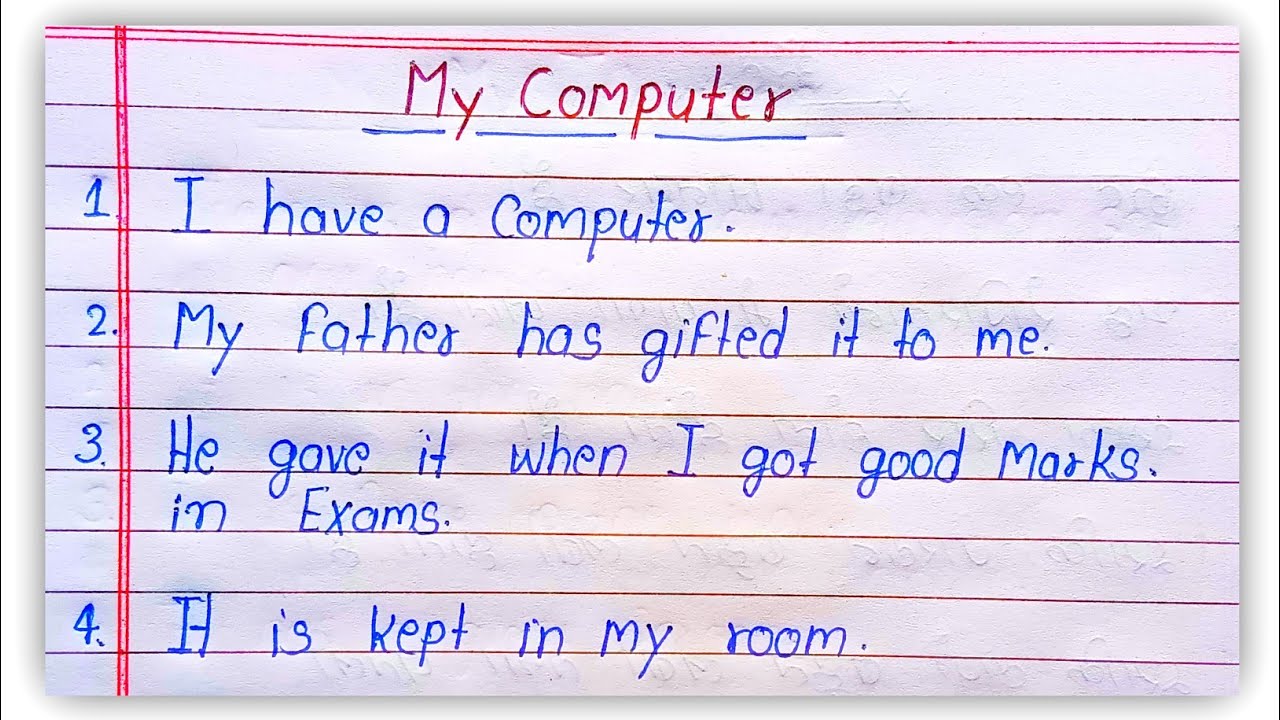 My Computer
1. I have a Computer.
2. My Father has gifted it to me.
3. He gave it when I got good Marks.
in Exams.
4. It is kept in my room.